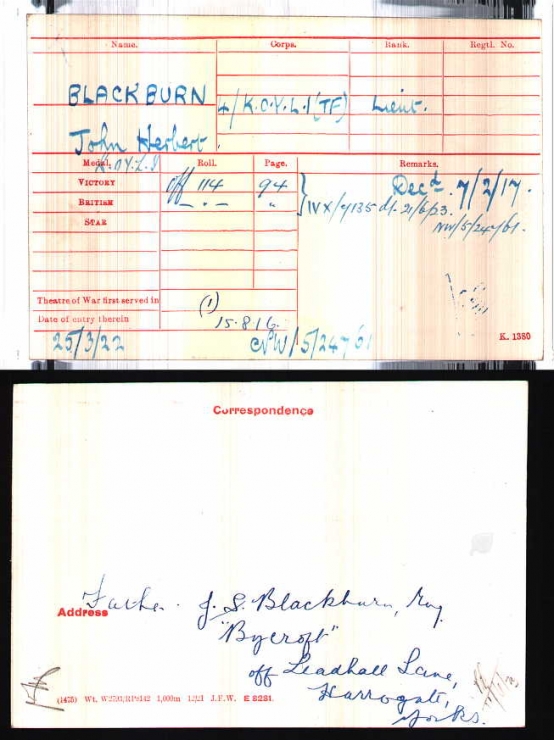 Name. Corps. Rank. Regtl. No.
BLACKBURN 4/K.O.Y.L.I (TF) Lieut.
John Herbert.
Medal. K.O.Y.L.I Roll. Page. Remarks.
VICTORY Off 114 94 Decd. 7/2/17.
BRITISH — . — " IVX/7135 d/- 21/6/23.
NW/5/24761.
STAR
Theatre of War first served in (1)
Date of entry therein 15.8.16.
25/3/22 NW/5/24761
K. 1380
Correspondence
Address Father. J. S. Blackburn, Esq
"Bycroft"
off Leadhall Lane,
Harrogate,
Yorks.
(1475) Wt. 5,000m J.F.W. E 8281.